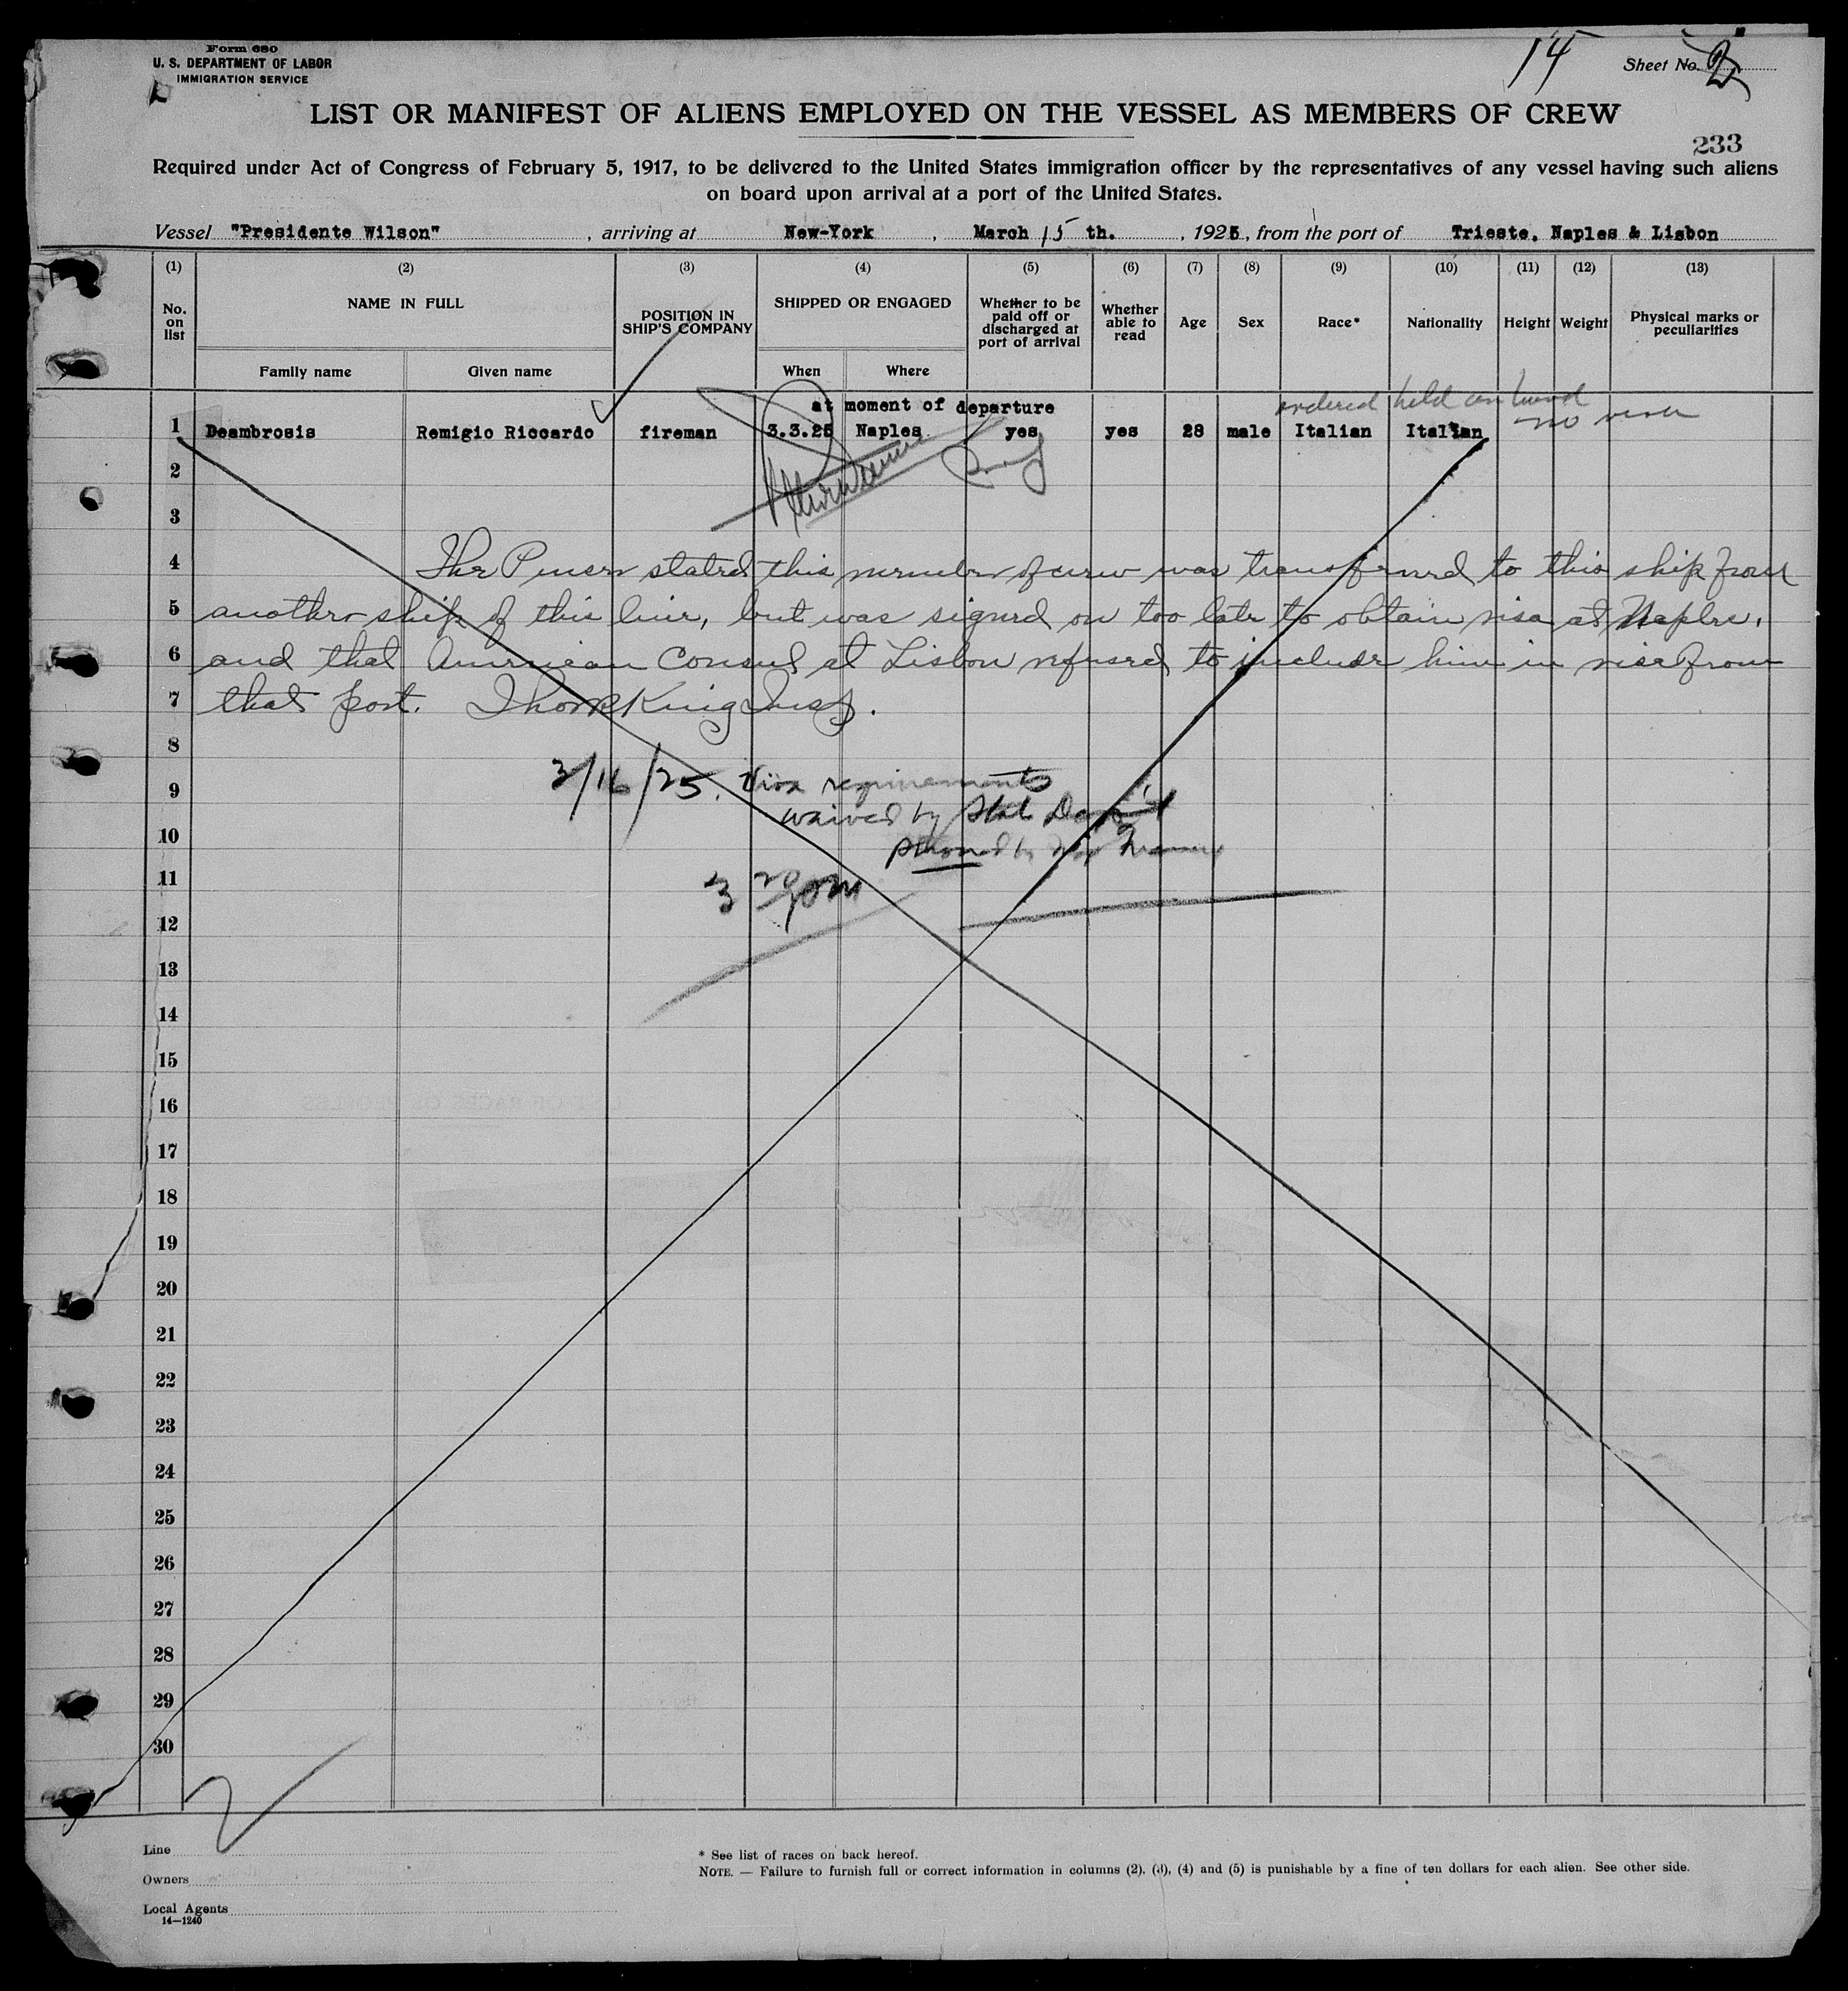 Form 680
U. S. DEPARTMENT OF LABOR
IMMIGRATION SERVICE
14
Sheet No. 2
LIST OR MANIFEST OF ALIENS EMPLOYED ON THE VESSEL AS MEMBERS OF CREW
233
Required under Act of Congress of February 5, 1917, to be delivered to the United States immigration officer by the representatives of any vessel having such aliens
on board upon arrival at a port of the United States.
Vessel "Presidente Wilson", arriving at New-York, March 15 th., 1925, from the port of Trieste, Naples & Lisbon
(1) (2) (3) (4) (5) (6) (7) (8) (9) (10) (11) (12) (13)
No. on list
NAME IN FULL
Family name
Given name
POSITION IN SHIP'S COMPANY
SHIPPED OR ENGAGED
When
Where
Whether to be paid off or discharged at port of arrival
Whether able to read
Age
Sex
Race*
Nationality
Height
Weight
Physical marks or peculiarities
at moment of departure
ordered held on board
no visa
1 Deambrosis Remigio Riccardo fireman 3.3.25 Naples yes yes 28 male Italian Italian
2
3
4 The Purser stated this member of crew was transferred to this ship from
5 another ship of this line, but was signed on too late to obtain visa at Naples,
6 and that American Consul at Lisbon refused to include him in visa from
7 that port. Thos R King Insp.
8
9 3/16/25. Visa requirements
10 waived by State Dep't
by
11 3 20 pm
12
13
14
15
16
17
18
19
20
21
22
23
24
25
26
27
28
29
30
Line
Owners
Local Agents
14—1240
* See list of races on back hereof.
NOTE. — Failure to furnish full or correct information in columns (2), (3), (4) and (5) is punishable by a fine of ten dollars for each alien. See other side.